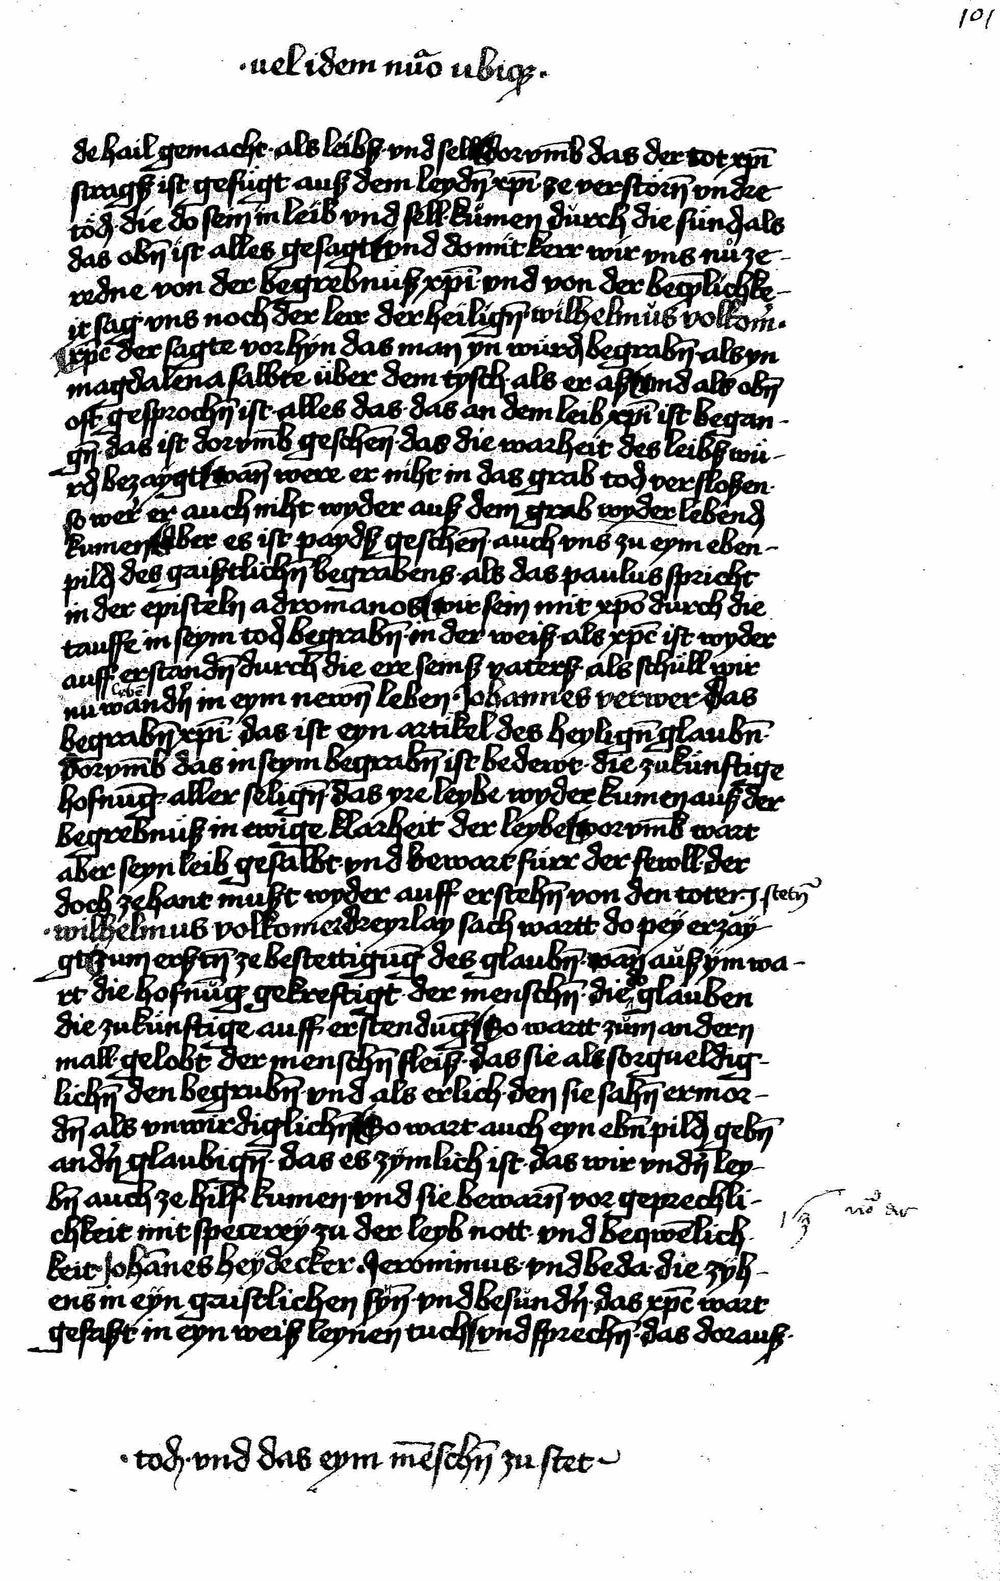 101
·uel idem nūo ubiqȝ·
de hail gemacht· als leibß vnd sell dorvm̄b das der tot xp̄i
stragß ist gefügt auß dem leydn̄ xp̄i· ze verstörn̄ vn dre
töd· die do sein in leib vnd sell· kůmen důrch die sünd als
das obn̄ ist alles gesagt vnd do mit kerr wir vns nů ze-
redne von der begrebnuß xp̄i· vnd von der beq̄lichke-
it sag· vns noch der lerr der heilign̄· wilhelmůs volkom̄·
xp̄c der sagte vor hyn das man yn würd begrabn̄· als yn
magdalena salbte über dem tysch· als er aß vnd als obn̄
oft gesprochn̄ ist· alles das· das an dem leib xp̄i ist began-
gn̄· das ist dorvm̄b geschen̄· das die warheit des leibß wü-
rd bezaygt wan̄ were er niht in das grab tod versloßen·
so wer̄ er auch niht wyder auß dem grab wyder lebend
kumen Aber es ist paydß geschen̄· auch vns zu eym eben-
pild des gaißtlichn̄ begrabens· als das paulus spricht
in der episteln ad romanos wir sein mit xp̄o durch die
tauffe in seym tod begrabn̄· in der weiß· als xp̄c ist wyder
auff erstandn̄ durch die ere seinß vaterß· als schüll wir
nů wandn̄ in eym newn̄ leben· Johannes verwer das
begrabn̄ xp̄i· das ist eyn artikel des heylign̄ glaubn̄·
dorvm̄b das in seym begrabn̄ ist bedewt· die zukünftige
hofnūg· aller selign̄ das yre leybe wyder kumen auß der
begrebnuß in ewige klarheit der leybe worvm̄b wart
aber seyn leib gesalbt· vnd bewart fürr der fewll· der
doch zehant mußt wyder auff erstehn̄ von den toten·
·wilhelmus volkomer dreyrlay sach wartt do pey erzay-
gt zum erstn̄ ze bestettigūg des glaubn̄· wan̄ auß ym wa-
rt die hofnūg gekreftigt· der menschn̄· die do glauben
die zukünftige auff erstendūg So wartt zům andern
mall· gelobt der menschn̄ fleiß· das sie als sorgueldig-
lichn̄ den begrubn̄· vnd als erlich· den sie sahn̄ ermor-
dn̄ als vnwirdiglichn̄ So wart auch eyn ebn̄ pild gebn̄
andn̄ glaubign̄· das es zymlich ist· das wir vndn̄ ley-
bn̄ auch ze hilf kumen· vnd sie bewarn̄ vor geprechli-
chkeit mit specerey zu der leyb nott· vnd beqwēlich·
keit Johānes heydecker· Jeronimus· vnd beda· die zyh-
ens in eyn gaistlichen syn̄· vnd besůndn̄· das xp̄c wart
gefaßt in eyn weiß leynen tuch vnd sprechn̄· das dorauß·
·tod· vnd das eym mēschn̄ zu stet